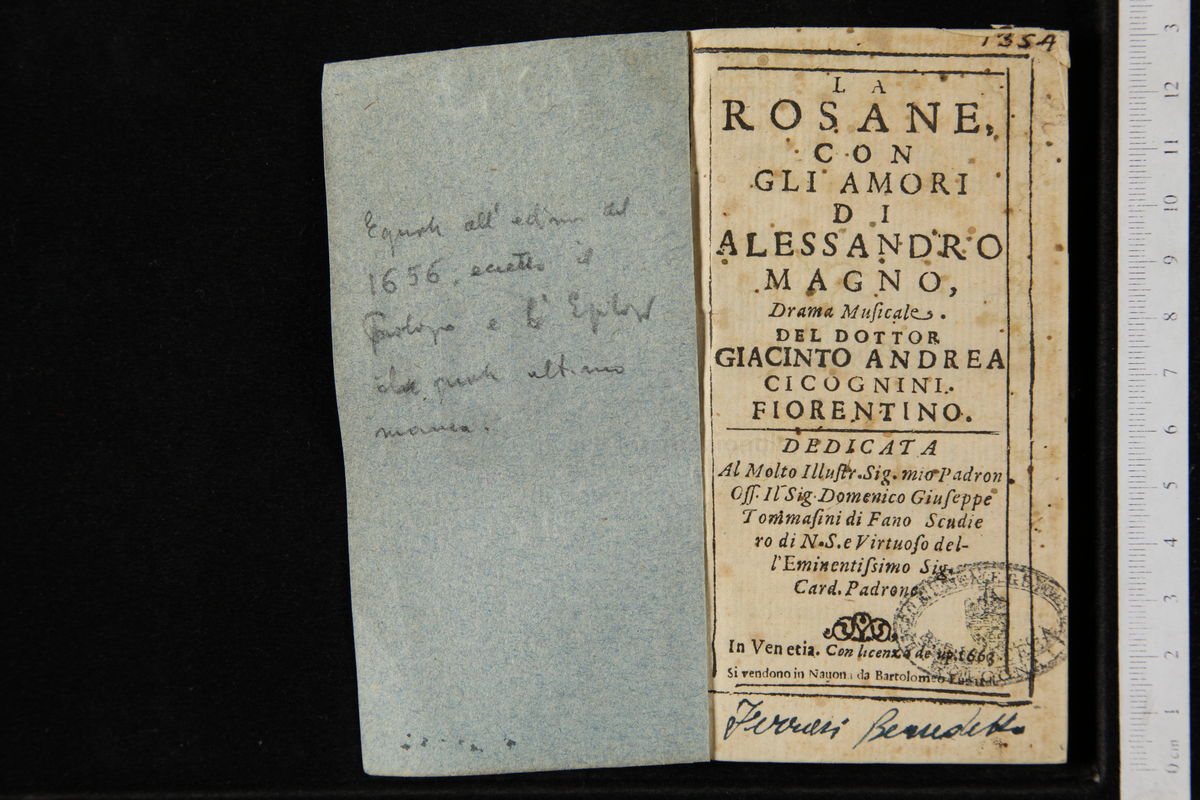 Eguale all' edizione del
1656. eccetto il
Prologo e l' Epilogo
quale ultimo
manca.
1354
LA
ROSANE,
CON
GLI AMORI
DI
ALESSANDRO
MAGNO,
Drama Muſicale.
DEL DOTTOR
GIACINTO ANDREA
CICOGNINI.
FIORENTINO.
DEDICATA
Al Molto Illuſtr. Sig. mio Padron
Oſſ. Il Sig. Domenico Giuſeppe
Tommaſini di Fano Scudie
ro di N.S. e Virtuoſo del-
l'Eminentiſsimo Sig.
Card. Padrone.
In Venetia. Con licenza de' 1663
Si vendono in Nauona da Bartolomeo
Ferrari Benedetto